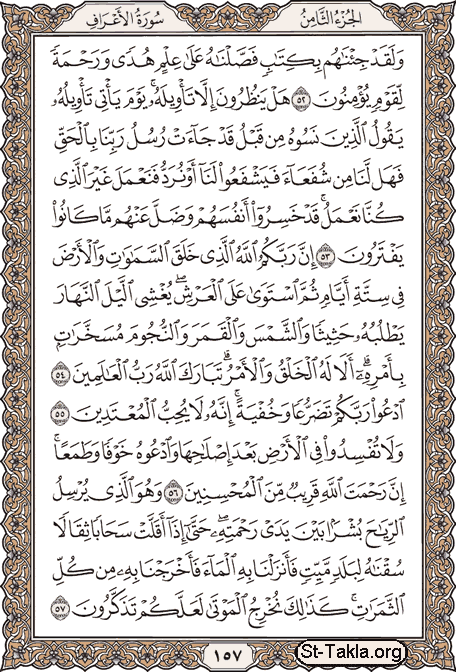 الجزء الثامن سورة الأعراف
وَلَقَدْ جِئْنَٰهُم بِكِتَٰبٍ فَصَّلْنَٰهُ عَلَىٰ عِلْمٍ هُدًى وَرَحْمَةً
لِّقَوْمٍ يُؤْمِنُونَ ٥٢ هَلْ يَنظُرُونَ إِلَّا تَأْوِيلَهُۥ ۚ يَوْمَ يَأْتِى تَأْوِيلُهُۥ
يَقُولُ ٱلَّذِينَ نَسُوهُ مِن قَبْلُ قَدْ جَآءَتْ رُسُلُ رَبِّنَا بِٱلْحَقِّ
فَهَل لَّنَا مِن شُفَعَآءَ فَيَشْفَعُوا۟ لَنَآ أَوْ نُرَدُّ فَنَعْمَلَ غَيْرَ ٱلَّذِى
كُنَّا نَعْمَلُ ۚ قَدْ خَسِرُوٓا۟ أَنفُسَهُمْ وَضَلَّ عَنْهُم مَّا كَانُوا۟
يَفْتَرُونَ ٥٣ إِنَّ رَبَّكُمُ ٱللَّهُ ٱلَّذِى خَلَقَ ٱلسَّمَٰوَٰتِ وَٱلْأَرْضَ
فِى سِتَّةِ أَيَّامٍ ثُمَّ ٱسْتَوَىٰ عَلَى ٱلْعَرْشِ ۖ يُغْشِى ٱلَّيْلَ ٱلنَّهَارَ
يَطْلُبُهُۥ حَثِيثًا وَٱلشَّمْسَ وَٱلْقَمَرَ وَٱلنُّجُومَ مُسَخَّرَٰتٍۭ
بِأَمْرِهِۦٓ ۗ أَلَا لَهُ ٱلْخَلْقُ وَٱلْأَمْرُ ۗ تَبَارَكَ ٱللَّهُ رَبُّ ٱلْعَٰلَمِينَ ٥٤
ٱدْعُوا۟ رَبَّكُمْ تَضَرُّعًا وَخُفْيَةً ۚ إِنَّهُۥ لَا يُحِبُّ ٱلْمُعْتَدِينَ ٥٥
وَلَا تُفْسِدُوا۟ فِى ٱلْأَرْضِ بَعْدَ إِصْلَٰحِهَا وَٱدْعُوهُ خَوْفًا وَطَمَعًا ۚ
إِنَّ رَحْمَتَ ٱللَّهِ قَرِيبٌ مِّنَ ٱلْمُحْسِنِينَ ٥٦ وَهُوَ ٱلَّذِى يُرْسِلُ
ٱلرِّيَٰحَ بُشْرًۢا بَيْنَ يَدَىْ رَحْمَتِهِۦ ۖ حَتَّىٰٓ إِذَآ أَقَلَّتْ سَحَابًا ثِقَالًا
سُقْنَٰهُ لِبَلَدٍ مَّيِّتٍ فَأَنزَلْنَا بِهِ ٱلْمَآءَ فَأَخْرَجْنَا بِهِۦ مِن كُلِّ
ٱلثَّمَرَٰتِ ۚ كَذَٰلِكَ نُخْرِجُ ٱلْمَوْتَىٰ لَعَلَّكُمْ تَذَكَّرُونَ ٥٧
١٥٧
St-Takla.org